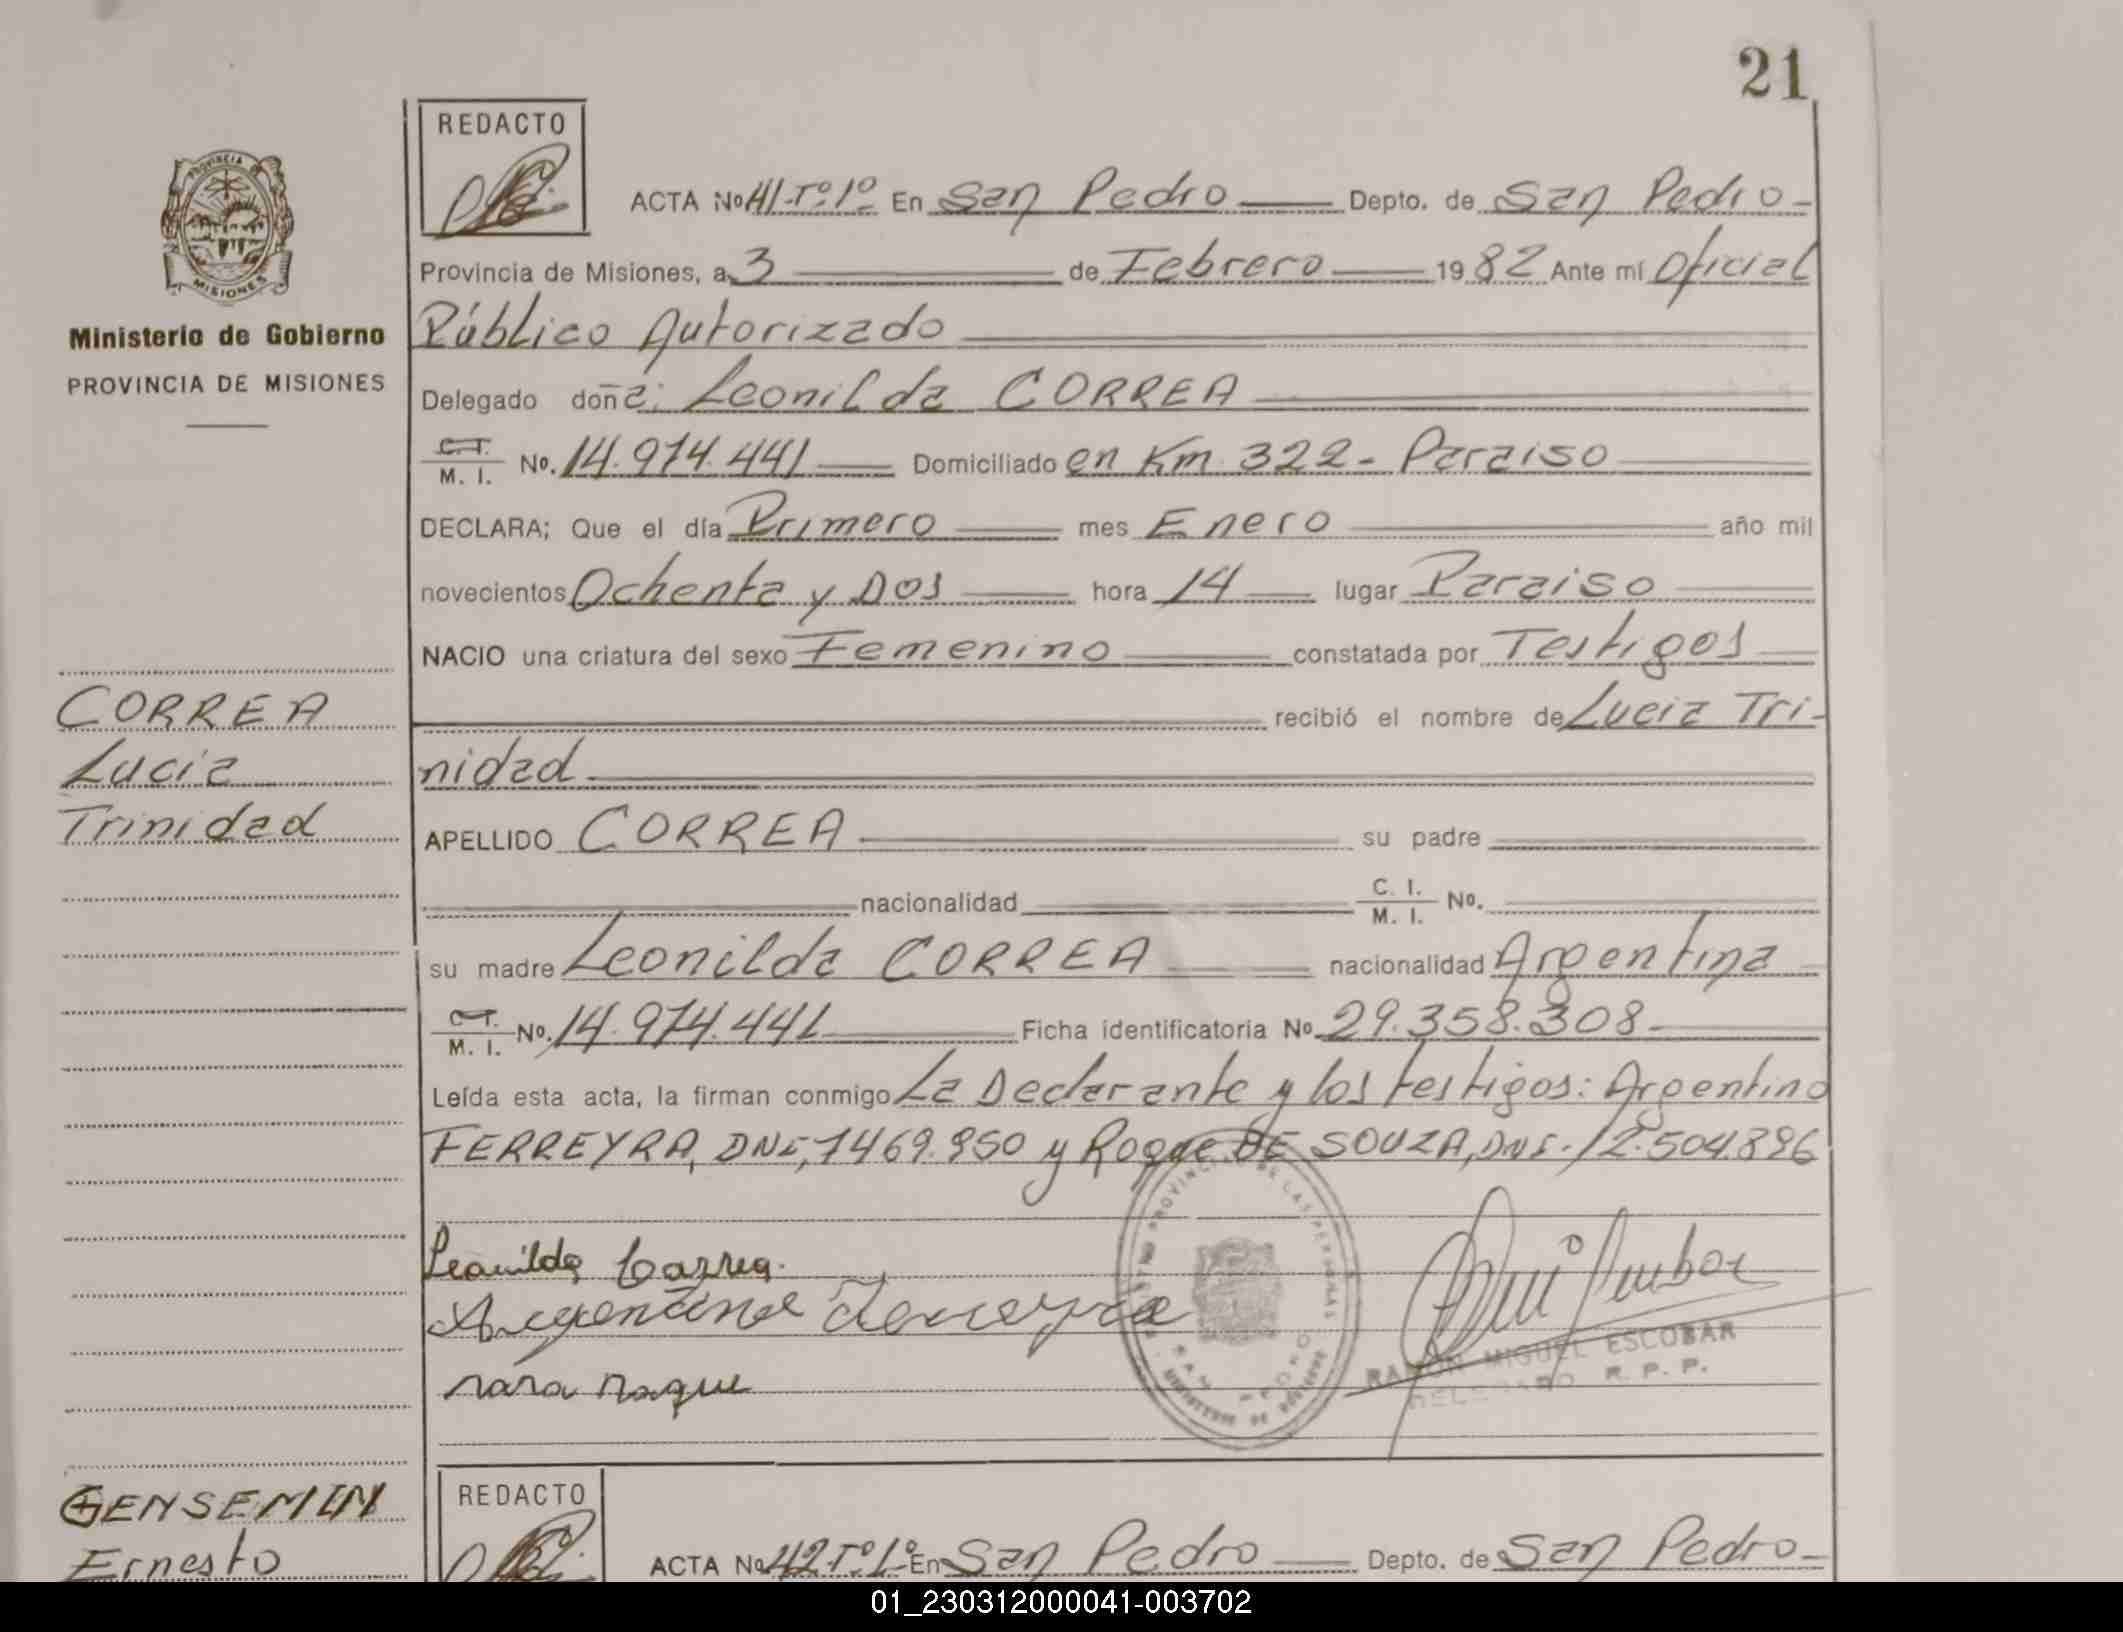 21
REDACTO
ACTA No 41-Tº.1º En San Pedro Depto. de San Pedro-
PROVINCIA
MISIONES
Provincia de Misiones, a 3 de Febrero 1982 Ante mí Oficial
Ministerio de Gobierno
PROVINCIA DE MISIONES
Público Autorizado
Delegado doña: Leonilda CORREA
C.I.
M. I. No. 14.974.441 Domiciliado en Km 322- Paraiso
DECLARA; Que el día Primero mes Enero año mil
novecientos Ochenta y Dos hora 14 lugar Paraiso
NACIO una criatura del sexo Femenino constatada por Testigos
recibió el nombre de Lucia Tri-
nidad
CORREA
Lucia
Trinidad
APELLIDO CORREA su padre
nacionalidad C. I.
M. I. No.
su madre Leonilda CORREA nacionalidad Argentina
C.I.
M. I. No. 14.974.441 Ficha identificatoria No 29.358.308-
Leída esta acta, la firman conmigo La Declarante y los testigos: Argentino
FERREYRA, DNI, 7469.950 y Roque DE SOUZA, DNI. 12.504.896
Leonilda Correa.
Argentino Ferreyra
Roque
RAMON MIGUEL ESCOBAR
DELEGADO R. P. P.
GENSEMIN
Ernesto
REDACTO
ACTA No 42-Tº.1º En San Pedro Depto. de San Pedro-
01_230312000041-003702